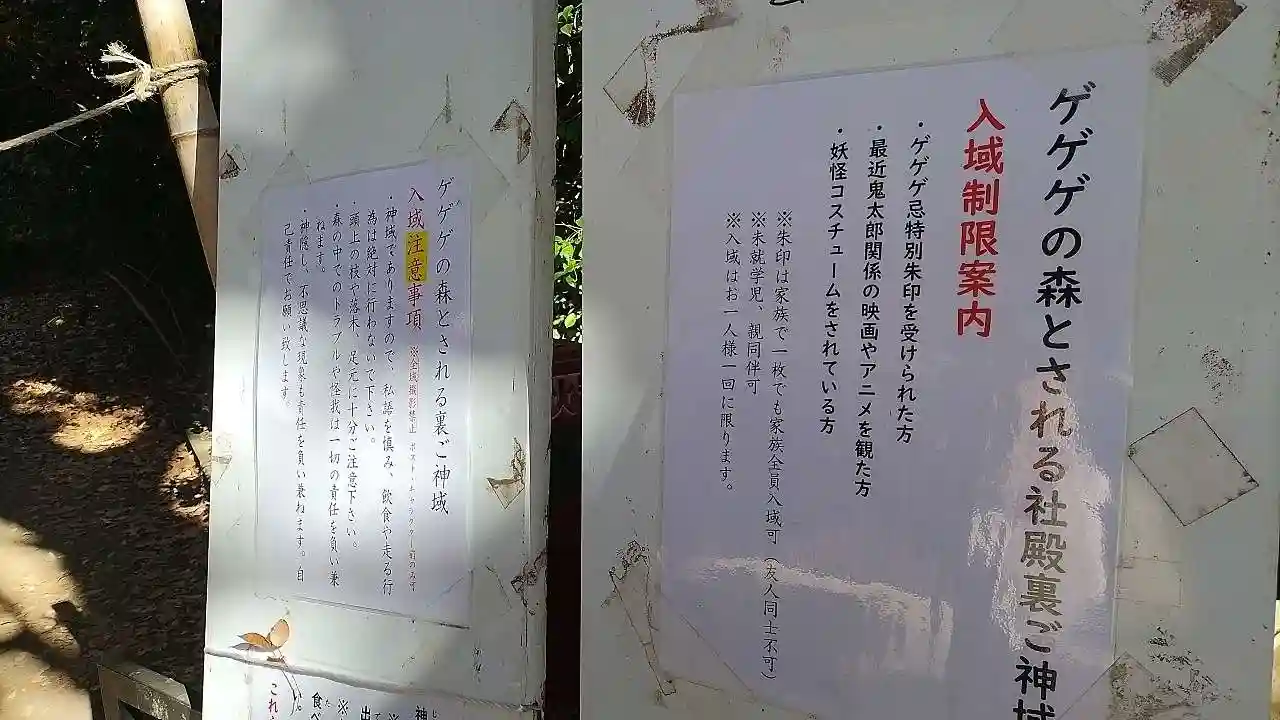 ゲゲゲの森とされる社殿裏ご神域
入域制限案内
・ゲゲゲ忌特別朱印を受けられた方
・最近鬼太郎関係の映画やアニメを観た方
・妖怪コスチュームをされている方
※朱印は家族で一枚でも家族全員入域可（友人同士不可）
※未就学児、親同伴可
※入域はお一人様一回に限ります。
ゲゲゲの森とされる裏ご神域
入域注意事項 ※全域撮影禁止 ポスト・キャラクター前のみ可
・神域でありますので、私語を慎み、飲食や走る行
為は絶対に行わないで下さい。
頭上の枝、落木、足元に十分ご注意下さい。
・森の中でのトラブルや怪我は一切の責任を負い兼
ねます。
・神隠し、不思議な現象も責任を負い兼ねます。自
己 お願いします。
神
※
出
※
食べ
これ